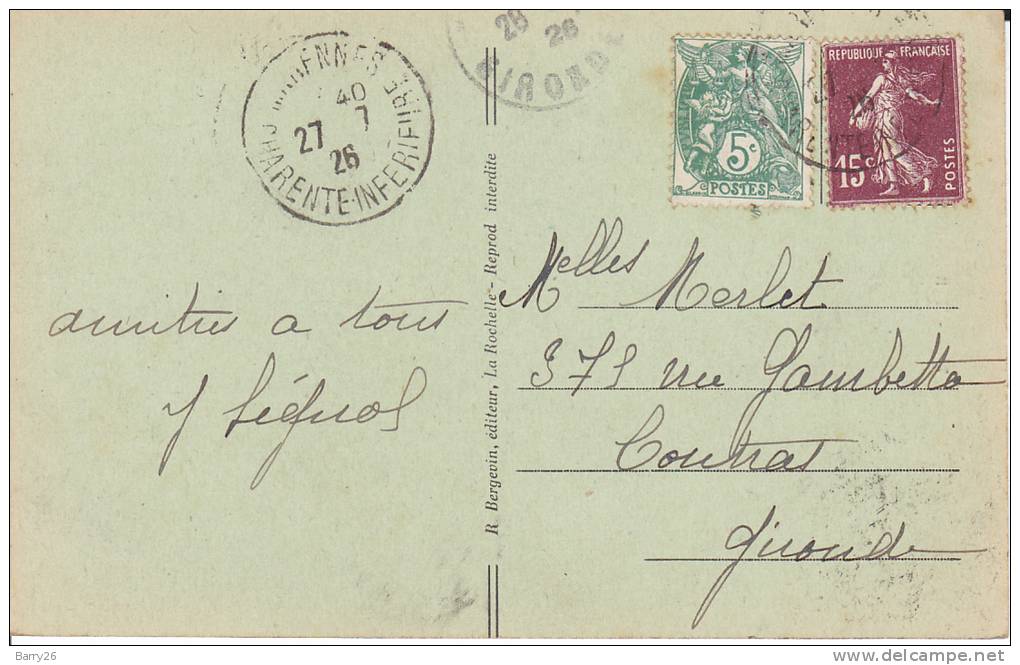 CHARENTE-INFERIEURE
40
27 7
26
28
26
GIRONDE
5c
POSTES
REPUBLIQUE FRANÇAISE
15c
POSTES
amitiés a tous
Melles Merlet
rue Gambetta
Coutras
Gironde
R. Bergevin, éditeur, La Rochelle - Reprod interdite
Barry26
http://www.delcampe.net